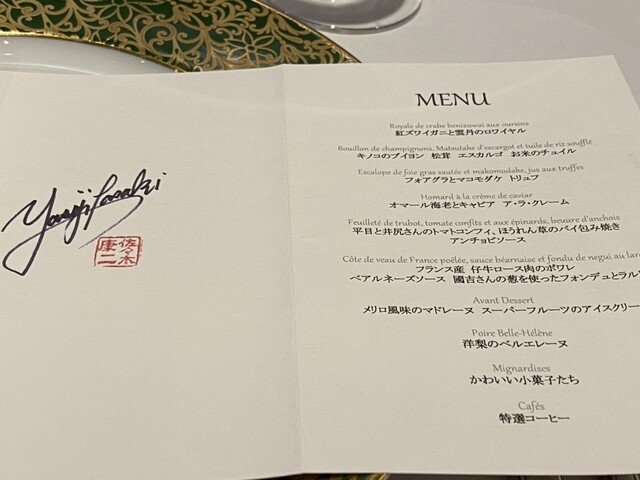 佐々木
康二
MENU
Royale de crabe benizuwai aux oursins
紅ズワイガニと雲丹のロワイヤル
Bouillon de champignons, Matsutake d'escargot et tuile de riz soufflé
キノコのブイヨン 松茸 エスカルゴ お米のチュイル
Escalope de foie gras sautée et makomodake, jus aux truffes
フォアグラとマコモダケ トリュフ
Homard à la crème de caviar
オマール海老とキャビア ア・ラ・クレーム
Feuilleté de trubot, tomate confits et aux épinards, beuure d'anchois
平目と井尻さんのトマトコンフィ、ほうれん草のパイ包み焼き
アンチョビソース
Côte de veau de France poêlée, sauce béarnaise et fondu de negui au lard
フランス産 仔牛ロース肉のポワレ
ベアルネーズソース 國吉さんの葱を使ったフォンデュとラル
Avant Dessert
メリロ風味のマドレーヌ スーパーフルーツのアイスクリー
Poire Belle-Hélène
洋梨のベルエレーヌ
Mignardises
かわいい小菓子たち
Cafés
特選コーヒー